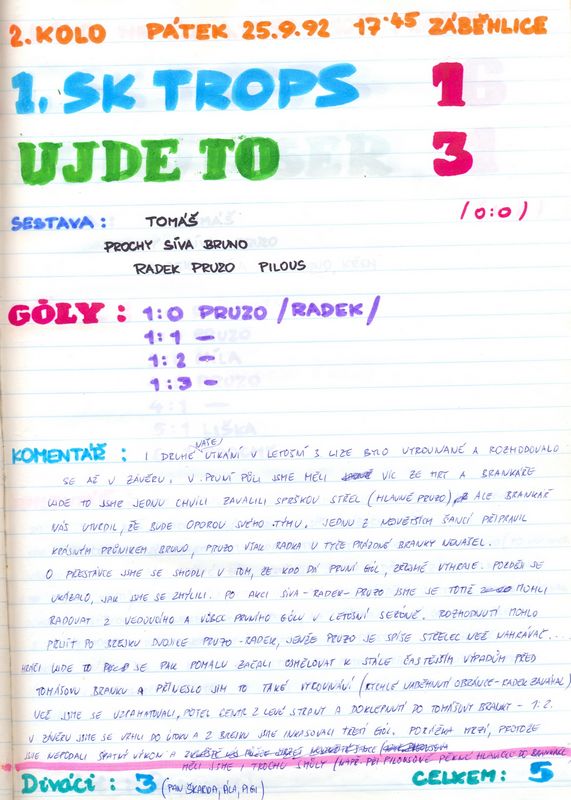 2. KOLO PÁTEK 25.9.92 17:45 ZÁBĚHLICE
1. SK TROPS 1
UJDE TO 3
(0:0)
SESTAVA: TOMÁŠ
PROCHY SÍVA BRUNO
RADEK PRUZO PILOUS
GÓLY: 1:0 PRUZO /RADEK/
1:1 —
1:2 —
1:3 —
KOMENTÁŘ: I DRUHÉ NAŠE UTKÁNÍ V LETOŠNÍ 3 LIZE BYLO VYROVNANÉ A ROZHODOVALO
SE AŽ V ZÁVĚRU. V PRVNÍ PŮLI JSME MĚLI VÍC ZE HRY A BRANKÁŘE
UJDE TO JSME JEDNU CHVÍLI ZAVALILI SPRŠKOU STŘEL (HLAVNĚ PRUZO), ALE BRANKÁŘ
NÁS UTVRDIL, ŽE BUDE OPOROU SVÉHO TÝMU. JEDNU Z NEJVĚTŠÍCH ŠANCÍ PŘIPRAVIL
KRÁSNÝM PRŮNIKEM BRUNO, PRUZO VŠAK RADKA U TYČE PRÁZDNÉ BRANKY NENAŠEL.
O PŘESTÁVCE JSME SE SHODLI V TOM, ŽE KDO DÁ PRVNÍ GÓL, ZŘEJMĚ VYHRAJE. POZDĚJI SE
UKÁZALO, JAK JSME SE ZMÝLILI. PO AKCI SÍVA-RADEK-PRUZO JSME SE TOTIŽ MOHLI
RADOVAT Z VEDOUCÍHO A VŮBEC PRVNÍHO GÓLU V LETOŠNÍ SEZÓNĚ. ROZHODNUTÍ MOHLO
PŘIJÍT PO BREJKU DVOJICE PRUZO-RADEK, JENŽE PRUZO JE SPÍŠE STŘELEC NEŽ NAHRÁVAČ...
HRÁČI UJDE TO SE PAK POMALU ZAČALI OSMĚLOVAT K STÁLE ČASTĚJŠÍM VÝPADŮM PŘED
TOMÁŠOVU BRANKU A PŘINESLO JIM TO TAKÉ VYROVNÁNÍ (RYCHLÉ NADBĚHNUTÍ OBRÁNCE-RADEK ZAVÁHAL)
NEŽ JSME SE VZPAMATOVALI, PŘIŠEL CENTR Z LEVÉ STRANY A DOKLEPNUTÍ DO TOMÁŠOVY BRANKY - 1:2.
V ZÁVĚRU JSME SE VRHLI DO ÚTOKU A Z BREJKU JSME INKASOVALI TŘETÍ GÓL. PORÁŽKA MRZÍ, PROTOŽE
JSME NEPODALI ŠPATNÝ VÝKON A
MĚLI JSME I TROCHU SMŮLY (NAPŘ. PŘI PILOUSOVĚ PĚKNÉ HLAVIČCE DO BRANKÁŘE
Diváci: 3 (PAN ŠKARDA, ÁĎA, PIGI)
CELKEM: 5